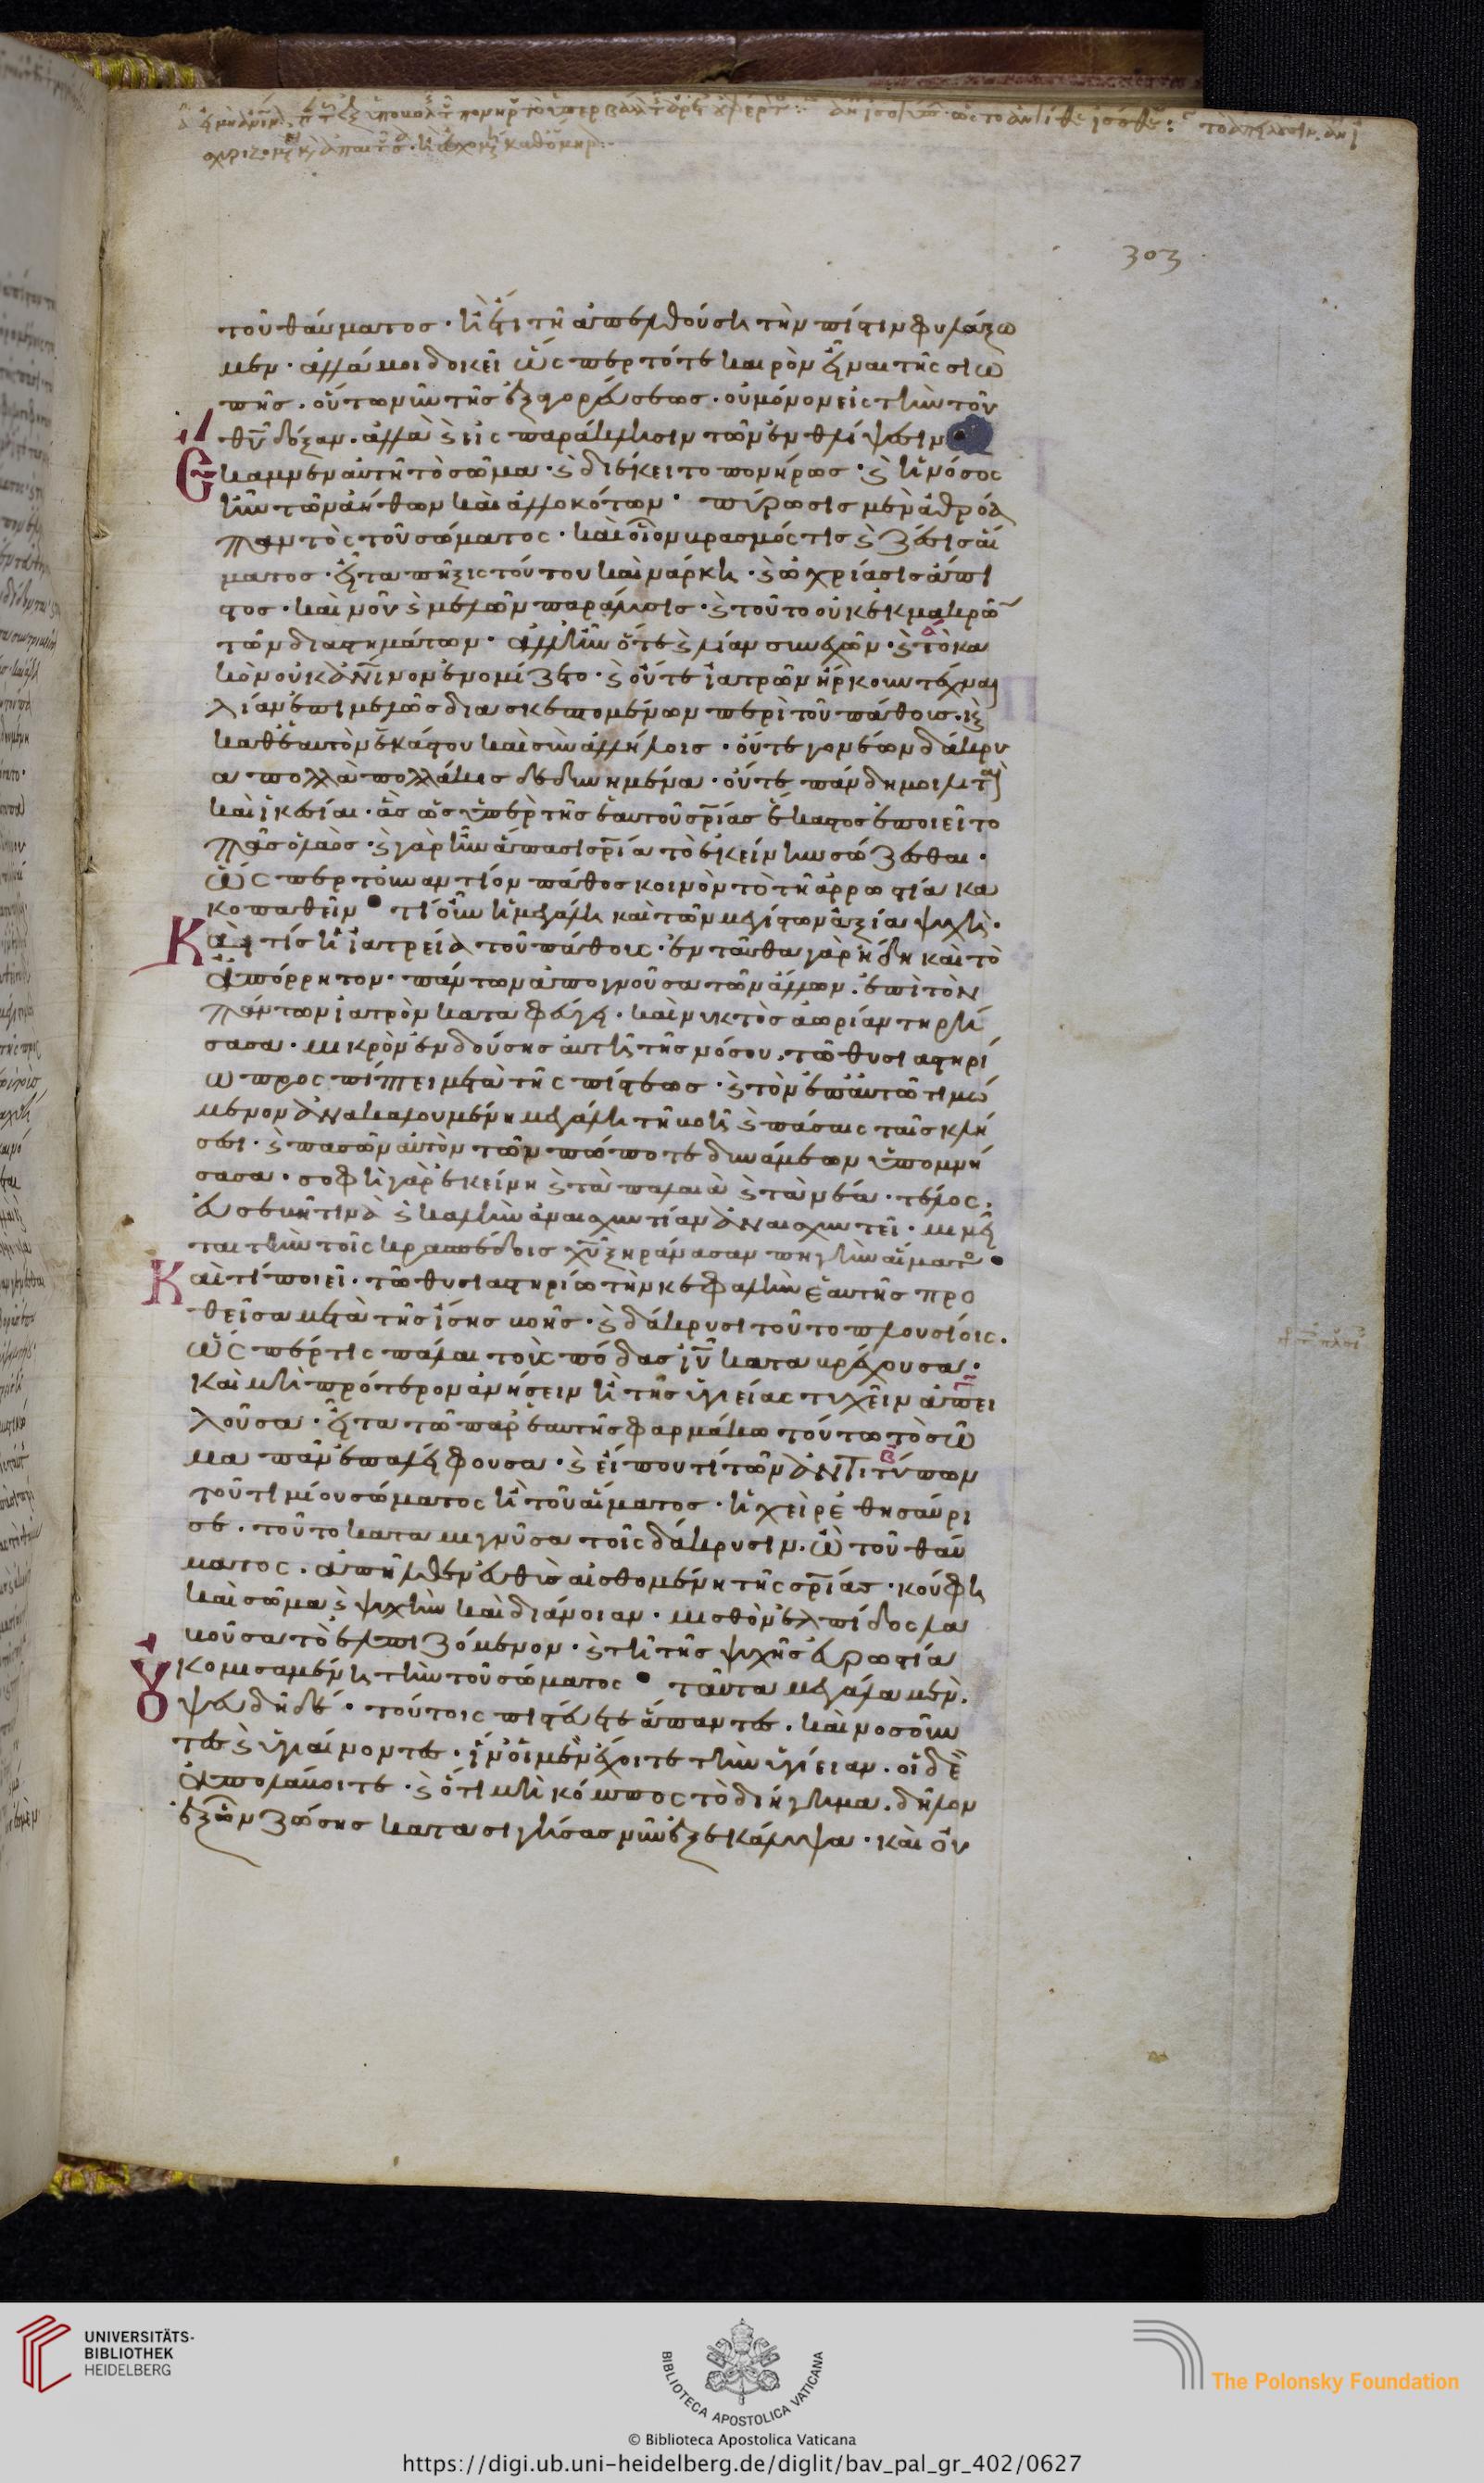 303
τοῦ θαύματος · ἢ ἔτι τῇ ἀπελθούσῃ τὴν πίστιν φυλάξω
μεν · ἀλλά μοι δοκεῖ ὥσπερ τότε καιρὸν εἶναι τῆς σιω
πῆς · οὕτω νῦν τῆς ἐξαγορεύσεως · οὐ μόνον εἰς τὴν τοῦ
θυ δόξαν · ἀλλὰ ϗ εἰς παράκλησιν τῶν ἐν θλίψεσιν
Ἔκαμνεν αὐτῇ τὸ σῶμα · ϗ διέκειτο πονήρως · ϗ ἡ νόσος
ἦν τῶν ἀήθων καὶ ἀλλοκότων · πύρωσις μὲν ἀθρόα
παντὸς τοῦ σώματος · καὶ οἷον βρασμός τις ϗ ζέσις αἵ
ματος · εἶτα πῆξις τούτου καὶ νάρκη · ϗ ὠχρίασις ἄπι
στος · καὶ νοῦ ϗ μελῶν παράλυσις · ϗ τοῦτο οὐκ ἐκ μακρῶ
τῶν διαστημάτων · ἀλλ' ἦν ὅτε ϗ λίαν συνεχῶν · ϗ τὸ κα
κὸν οὐκ ἀνινον ἐνομίζετο · ϗ οὔτε ἰατρῶν ἤρκουν τέχναι
λίαν ἐπιμελῶς διασκεπομένων περὶ τοῦ πάθους · ϗ
καθ' ἑαυτὸν ἑκάστου καὶ σὺν ἀλλήλοις · οὔτε γονέων δάκρυ
α πολλὰ πολλάκις δεδυνημένα · οὔτε πάνδημοι λιτ
καὶ ἱκεσίαι · ἃς ὡς ὑπὲρ τῆς ἑαυτοῦ σρίας ἕκαστος ἐποιεῖτο
πᾶς ὁ λαός · ϗ γὰρ ἦν ἅπασι σρία τὸ ἐκείνην σώζεσθαι ·
ὥσπερ τοὐναντίον πάθος κοινὸν τὸ τῇ ἀρρωστία κα
κοπαθεῖν · τί οὖν ἡ μεγάλη καὶ τῶν μεγίστων ἀξία ψυχή ·
Καὶ τίς ἡ ἰατρεία τοῦ πάθους · ἐνταῦθα γὰρ ἤδη καὶ τὸ
ἀπόρρητον · πάντων ἀπογνοῦσα τῶν ἄλλων · ἐπὶ τὸν
πάντων ἰατρὸν καταφεύγει · καὶ νυκτὸς ἀωρίαν τηρή
σασα · μικρὸν ἐνδούσης αὐτῇ τῆς νόσου · τῶ θυσιαστηρί
ω προσπίπτει μετὰ τῆς πίστεως · ϗ τὸν ἐπ' αὐτῶ τιμώ
μενον ἀνακαλουμένη μεγάλη τῇ βοῇ ϗ πάσαις ταῖς κλή
σεσι · ϗ πασῶν αὐτὸν τῶν πώποτε δυνάμεων ὑπομνή
σασα · σοφὴ γὰρ ἐκείνη ϗ τὰ παλαιὰ ϗ τὰ νέα · τέλος ·
εὐσεβῆ τινα ϗ καλὴν ἀναισχυντίαν ἀναισχυντεῖ · μιμεῖ
ται τὴν τοῖς κρασπέδοις χυ ξηράνασαν πηγὴν αἵματ
Καὶ τί ποιεῖ · τῶ θυσιαστηρίω τὴν κεφαλὴν ἑαυτῆς προ
θεῖσα μετὰ τῆς ἴσης βοῆς · ϗ δάκρυσι τοῦτο πλουσίοις ·
ὥσπερ τις πάλαι τοὺς πόδας ιυ καταβρέχουσα ·
Καὶ μὴ πρότερον ἀνήσειν ἢ τῆς ὑγιείας τυχεῖν ἀπει
λοῦσα · εἶτα τῶ παρ' ἑαυτῆς φαρμάκω τούτω τὸ σῶ
μα πᾶν ἐπαλείφουσα · ϗ εἴ που τί τῶν ἀντιτύπων
τοῦ τιμίου σώματος ἢ τοῦ αἵματος · ἡ χεὶρ ἐθησαύρι
σε · τοῦτο καταμιγνῦσα τοῖς δάκρυσιν · ὢ τοῦ θαύ
ματος · ἀπῆλθεν εὐθὺς αἰσθομένη τῆς σρίας · κούφη
καὶ σῶμα ϗ ψυχὴν καὶ διάνοιαν · μισθὸν ἐλπίδος λα
βοῦσα τὸ ἐλπιζόμενον · ϗ τῇ τῆς ψυχῆς εὐρωστία
κομισαμένη τὴν τοῦ σώματος · ταῦτα μεγάλα μὲν ·
Οὐ ψευδῆ δέ · τούτοις πιστεύετε ἅπαντες · καὶ νοσοῦν
τες ϗ ὑγιαίνοντες · ἵν' οἱ μὲν ἔχοιτε τὴν ὑγίειαν · οἱ δὲ
ἀπολάβοιτε · ϗ ὅτι μὴ κόμπος τὸ διήγημα · δῆλον
ἐξ ὧν ζώσης κατασιγήσας νῦν ἐξεκάλυψα · καὶ οὐ
UNIVERSITÄTS-
BIBLIOTHEK
HEIDELBERG
BIBLIOTECA APOSTOLICA VATICANA
The Polonsky Foundation
© Biblioteca Apostolica Vaticana
https://digi.ub.uni-heidelberg.de/diglit/bav_pal_gr_402/0627